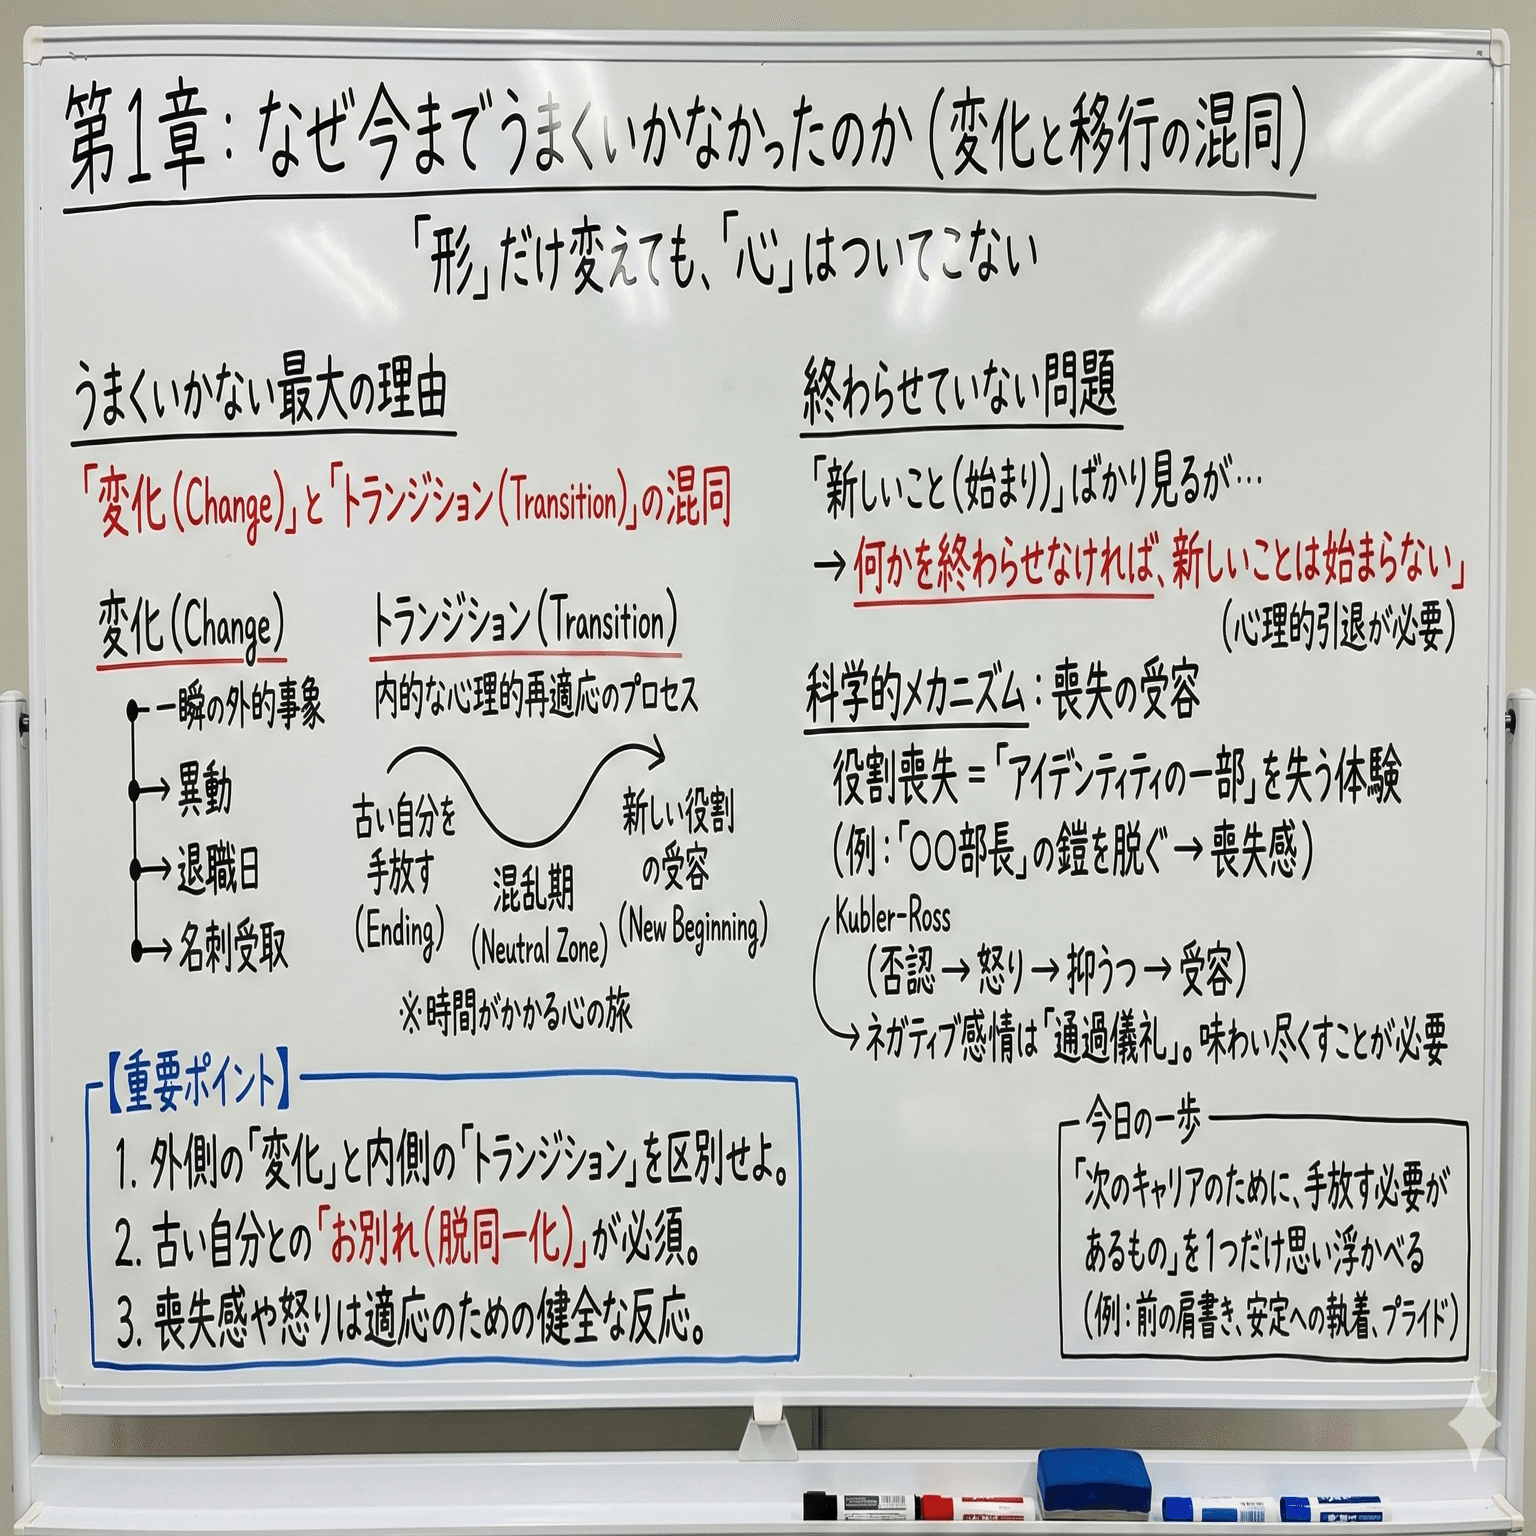 第1章：なぜ今までうまくいかなかったのか(変化と移行の混同)
「形」だけ変えても、「心」はついてこない
うまくいかない最大の理由
「変化(Change)」と「トランジション(Transition)」の混同
変化(Change)
一瞬の外的事象
→異動
→退職日
→名刺受取
トランジション(Transition)
内的な心理的再適応のプロセス
古い自分を
手放す
(Ending)
混乱期
(Neutral Zone)
新しい役割
の受容
(New Beginning)
※時間がかかる心の旅
【重要ポイント】
1. 外側の「変化」と内側の「トランジション」を区別せよ。
2. 古い自分との「お別れ(脱同一化)」が必須。
3. 喪失感や怒りは適応のための健全な反応。
終わらせていない問題
「新しいこと(始まり)」ばかり見るが…
→何かを終わらせなければ、新しいことは始まらない」
(心理的引退が必要)
科学的メカニズム：喪失の受容
役割喪失=「アイデンティティの一部」を失う体験
(例：「〇〇部長」の鎧を脱ぐ→喪失感)
Kubler-Ross
(否認→怒り→抑うつ→受容)
→ネガティブ感情は「通過儀礼」。味わい尽くすことが必要
今日の一歩
「次のキャリアのために、手放す必要が
あるもの」を1つだけ思い浮かべる
(例：前の肩書き、安定への執着、プライド)